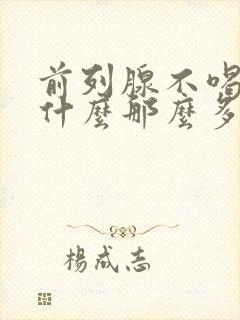 前列腺不喝
什麼那麼多
楊成志